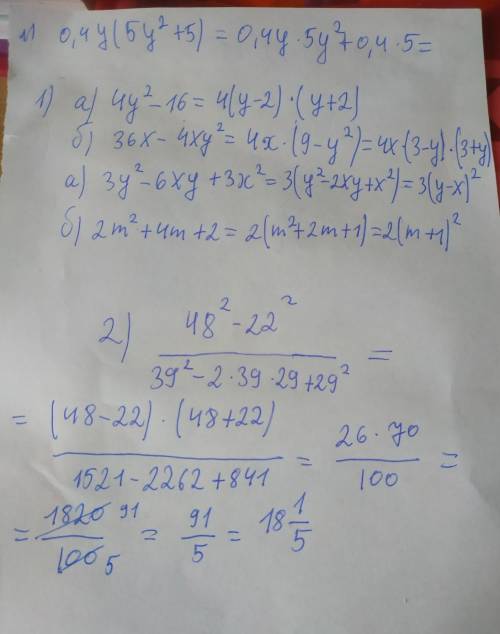 м) 0,4y(5y²+5) = 0,4y·5y²+0,4·5=
1) а) 4y²-16=4(y-2)·(y+2)
б) 36x-4xy²=4x·(9-y²)=4x·(3-y)·(3+y)
а) 3y²-6xy+3x²=3(y²-2xy+x²)=3(y-x)²
б) 2m²+4m+2=2(m²+2m+1)=2(m+1)²
2) (48²-22²)/(39²-2·39·29+29²) =
= ((48-22)·(48+22))/(1521-2262+841) = (26·70)/100 =
= (1820 91)/(100 5) = 91/5 = 18 1/5